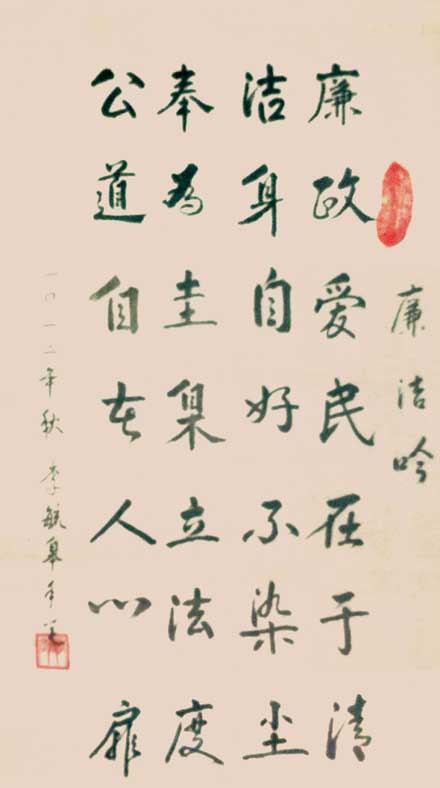 廉洁吟
廉政爱民在于清
洁身自好不染尘
奉為圭臬立法度
公道自在人心扉
二〇一二年秋 李毓皋手笔